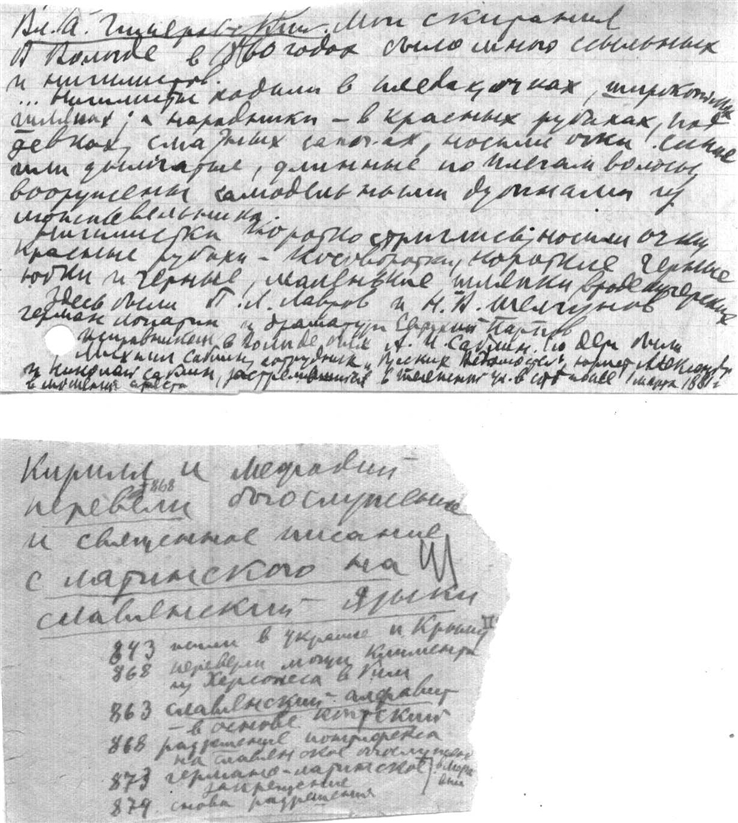 Вл. А. Гиляровский. Мои скитания
В Вологде в 80 годах было много ссыльных
и нигилистов.
... Нигилисты ходили в пледах, очках, широкополых
шляпах; а народники – в красных рубахах, под
девках, смазных сапогах, носили очки синие
или дымчатые, длинные по плечам волосы,
вооружены самодельными дубинами из
можжевельника.
Нигилистки коротко стриглись, носили очки
красные рубахи – косоворотки, короткие черные
юбки и черные, маленькие шляпки вроде кучерских
Здесь были П. Л. Лавров и Н. В. Шелгунов
Герман Лопатин и драматург Евтихий Карпов
в Вологде был А. И. его дети были
Михаил сотрудник Русских Ведомостей, юрист Александр
и Николай застрелившийся в 1 марта 1881 г
и ареста
Кирилл и Мефодий
868
перевели богослужение
и священное писание
с латинского на
славянский языки
843 были в Украине и Крыму
868 перевезли мощи Климента
из Херсонеса в Рим
863 славянский алфавит
– в основе коптский
868 разрешение понтифекса
на славянское богослужение
873 германо-латинское
запрещение
879 снова разрешения